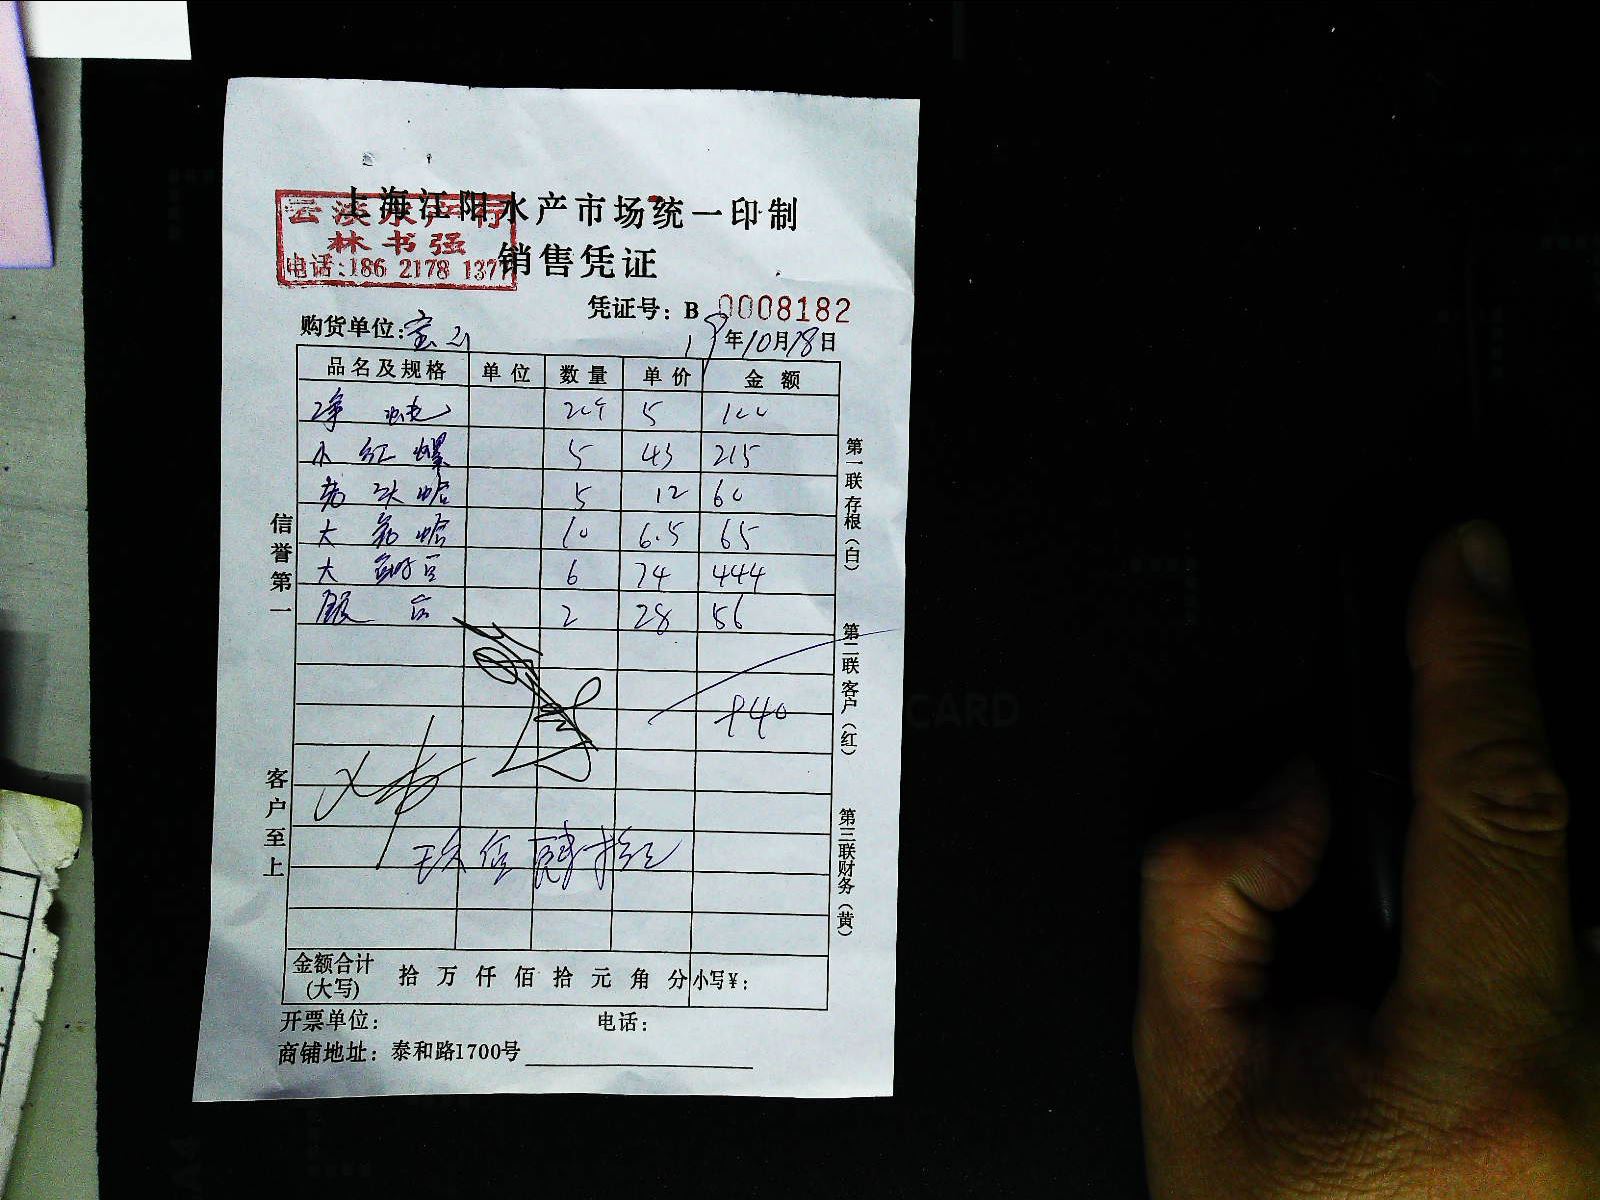 上海江阳水产市场统一印制
云淡水产行
林书强
电话:186 2178 1377
销售凭证
凭证号: B 0008182
购货单位:宝山
19年10月18日
品名及规格 单位 数量 单价 金额
净 5 100
小红螺 5 43 215
头蛤 5 12 60
大 蛤 10 6.5 65
大 6 74 444
2 28 56
940
玖佰肆拾元
金额合计(大写) 拾万仟佰拾元角分 小写¥:
开票单位: 电话:
商铺地址: 泰和路1700号
信誉第一
客户至上
第一联存根(白)
第二联客户(红)
第三联财务(黄)
CARD
A4